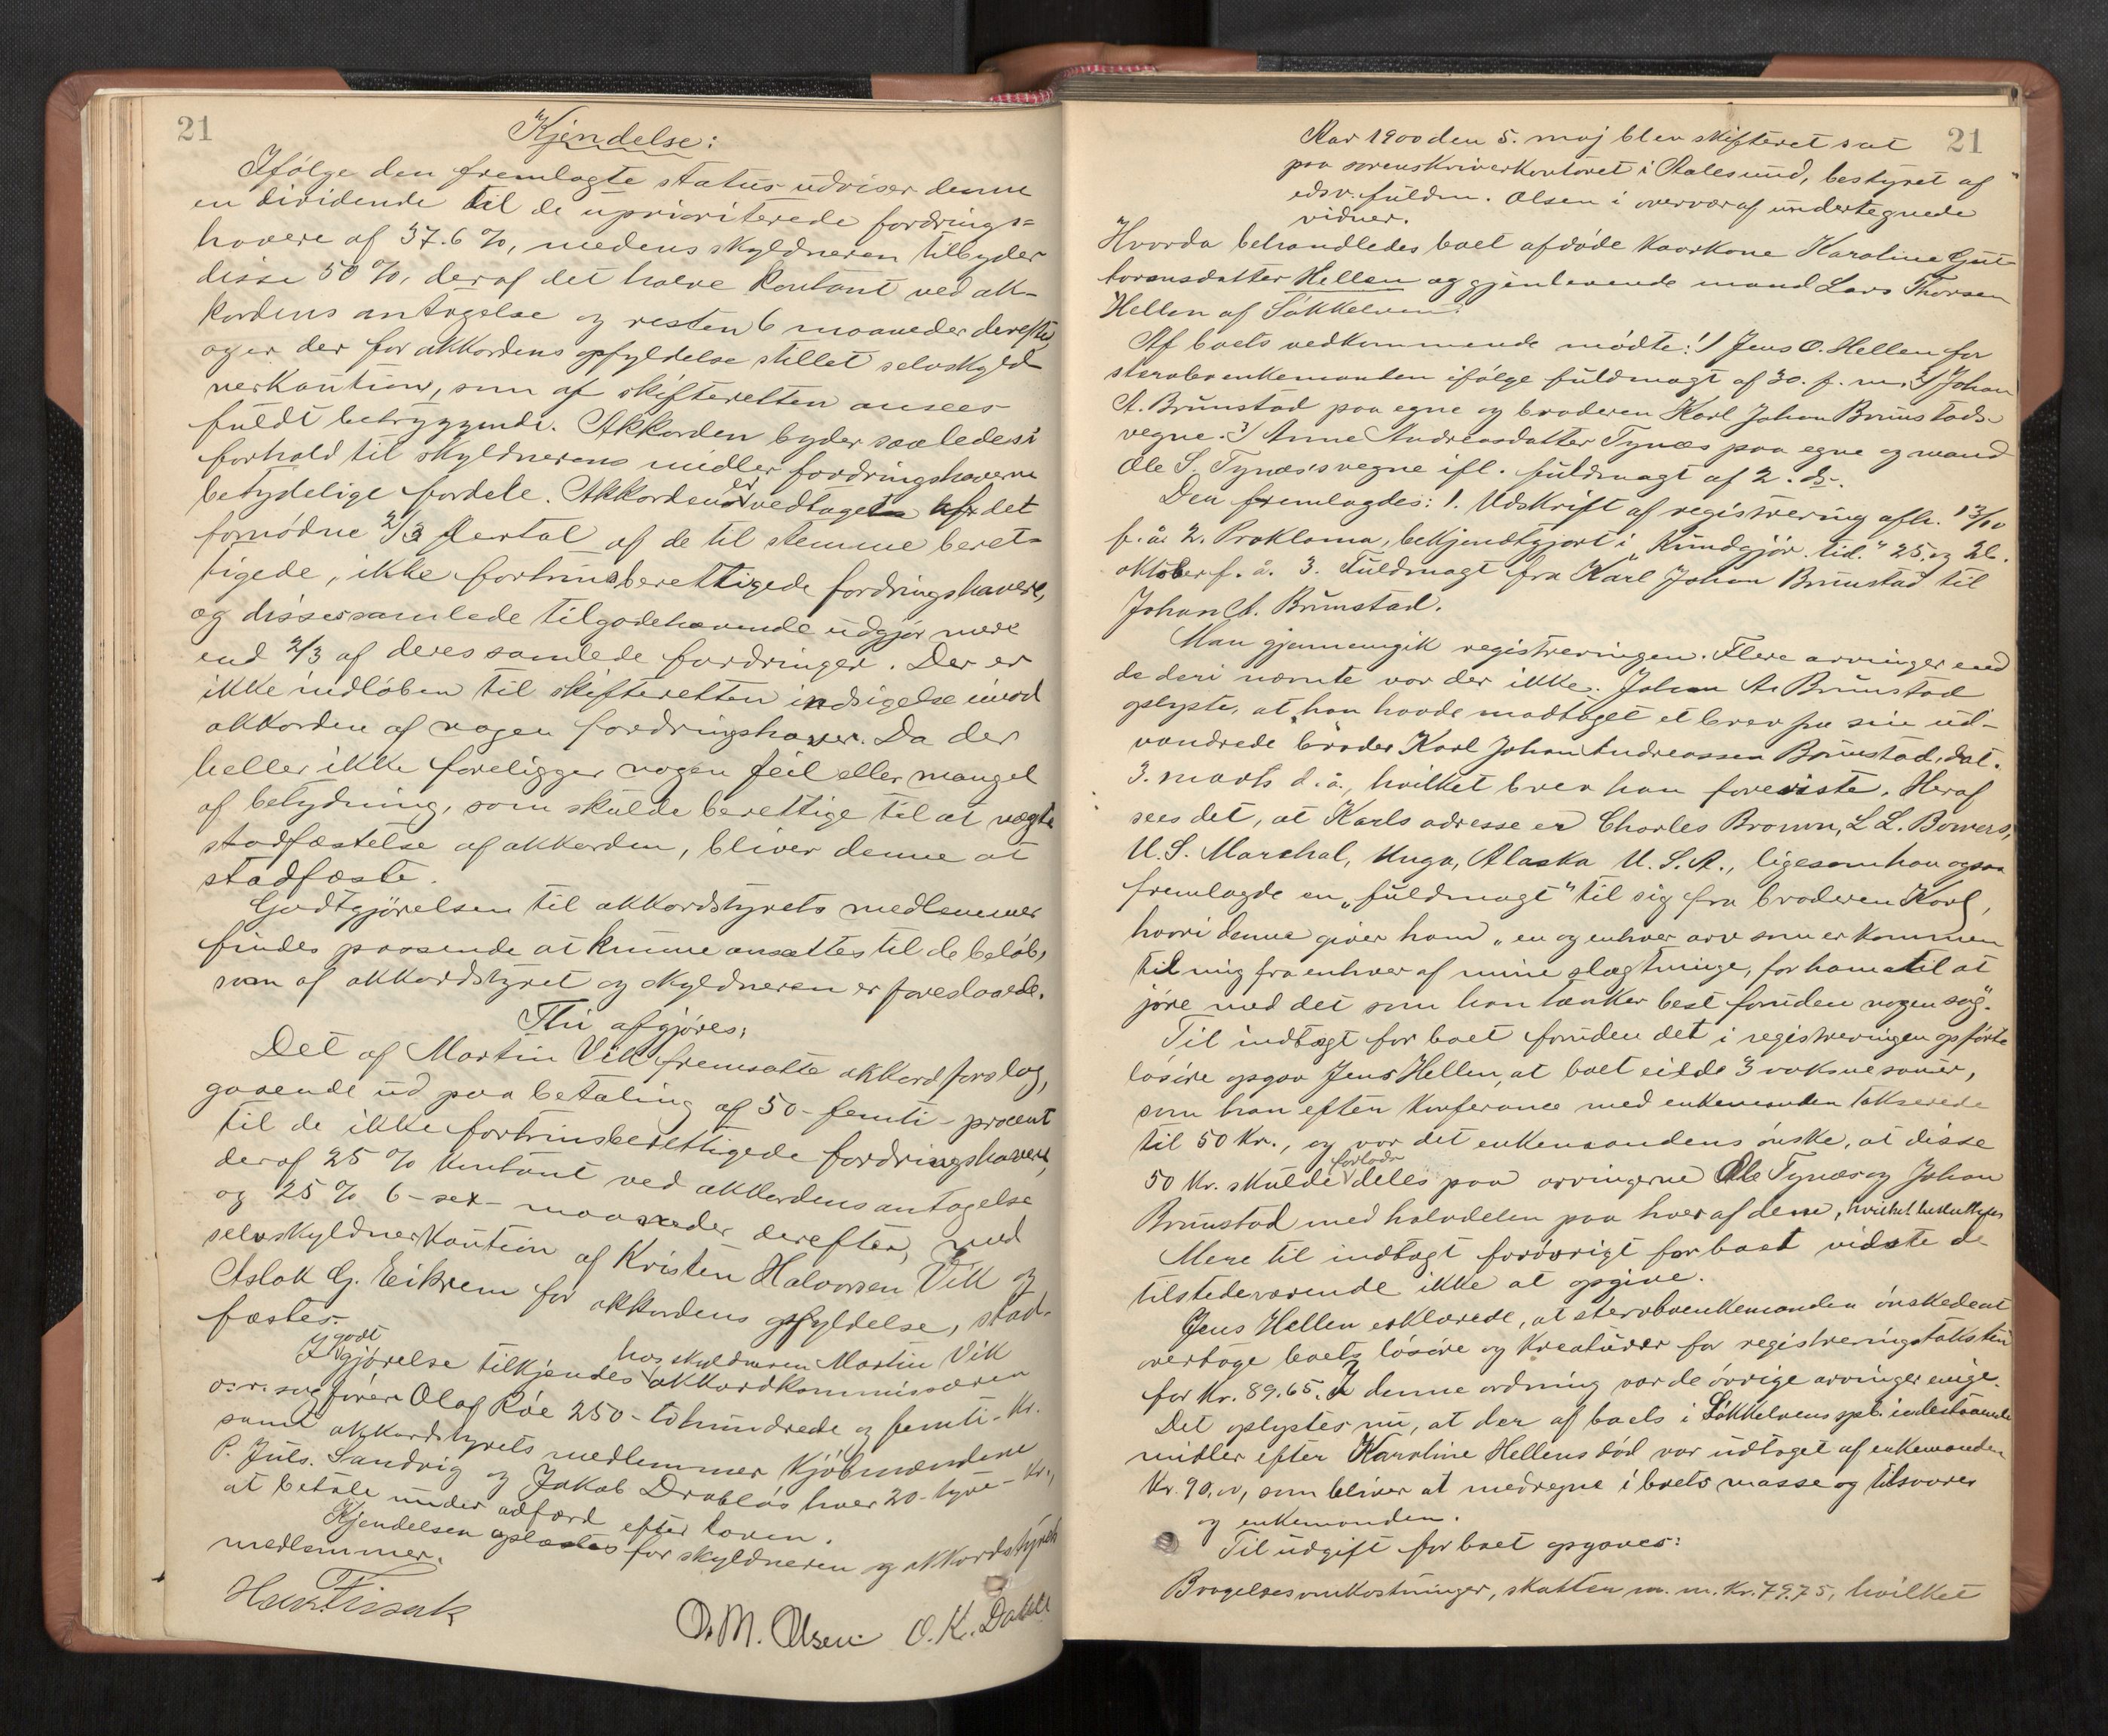 21
Kjendelse:
Ifølge den fremlagte status udviser denne
en dividende til de uprioriterede fordrings=
havere af 37.6 %, medens skyldneren tilbyder
disse 50 %, deraf det halve kontant ved ak-
kordens antagelse og resten 6 maaneder derefter
og er der for akkordens opfyldelse stillet selvskyld
nerkaution, som af skifteretten ansees
fuldt betryggende. Akkorden byder saaledes i
forhold til skyldnerens midler fordringshaverne
betydelige fordele. Akkorden er vedtaget af det
fornødne 2/3 flertal af de til stemme beret-
tigede, ikke fortrinsberettigede fordringshavere,
og disses samlede tilgodehavende udgjør mere
end 2/3 af deres samlede fordringer. Der er
ikke indløben til skifteretten indsigelse imod
akkorden af nogen fordringshaver. Da der
heller ikke foreligger nogen feil eller mangel
af betydning, som skulde berettige til at nægte
stadfæstelse af akkorden, bliver denne at
stadfæste.
Godtgjörelsen til akkordstyrets medlemmer
findes passende at kunne ansættes til de beløb,
som af akkordstyret og skyldneren er foreslaaede.
Thi afgjøres:
Det af Martin Vik fremsatte akkordforslag,
gaaende ud paa betaling af 50 - femti - procent
til de ikke fortrinsberettigede fordringshavere,
deraf 25 % kontant ved akkordens antagelse
og 25 % 6 - sex - maaneder derefter, med
selvskyldnerkaution af Kristen Halvorsen Vik og
Aslak G. Eikrem for akkordens opfyldelse, stad-
fæstes.
I godtgjörelse tilkjendes hos skyldneren Martin Vik akkordkommissæren
o.r.sagfører Olaf Röe 250 - tohundrede og femti - Kr.
samt akkordstyrets medlemmer Kjöbmændene
P. Juls. Landvig og Jakob Drabløs hver 20 - tyve - Kr.,
at betale under adfærd efter loven.
Kjendelsen oplæstes for skyldneren og akkordstyrets
medlemmer.
O. M. Olsen O. K. Dahle
21
Aar 1900 den 5. maj blev skifteret sat
paa sorenskriverkontoret i Aalesund, bestyret af
edsv. fuldm. Olsen i overvær af undertegnede
vidner.
Hvorda behandledes boet afdöde kaarkone Karoline Gut-
tormsdatter Hellen og gjenlevende mand Lars Thorsen
Hellen af Søkkelven.
Af boets vedkommende mødte: 1) Jens O. Hellen for
stervboenkemanden ifölge fuldmagt af 30. f. m. 2) Johan
A. Brunstad paa egne og broderen Karl Johan Brunstads
vegne. 3) Anne Andreasdatter Tynæs paa egne og mand
Ole S. Tynæs's vegne ifl. fuldmagt af 2. ds.
Der fremlagdes: 1. Udskrift af registrering afh. 13/10
f. å. 2. Proklama, bekjendtgjort i "Kundgjør. tid." 25. og 26.
oktober f. å. 3. Fuldmagt fra Karl Johan Brunstad til
Johan A. Brunstad.
Man gjennemgik registreringen. Flere arvinger end
de deri nævnte var der ikke. Johan A. Brunstad
oplyste, at han havde modtaget et brev fra sin ud-
vandrede broder Karl Johan Andreassen Brunstad, dat.
3. marts d. å., hvilket brev han foreviste. Heraf
sees det, at Karls adresse er Charles Brown, L L. Bowers,
U. S. Marshal, Unga, Alaska U. S. A., ligesom han ogsaa
fremlagde en "fuldmagt" til sig fra broderen Karl,
hvori denne giver ham "en og enhver arv som er kommen
til mig fra enhver af mine slægtninge, for ham til at
jøre med det som han tænker best foruden nogen sag".
Til indtægt for boet foruden det i registreringen opførte
løsöre opgav Jens Hellen, at boet eiede 3 voksne sauer,
som han efter konferance med enkemanden takserede
til 50 Kr., og var det enkemandens ønske, at disse
50 Kr. skulde forlods deles paa arvingerne Ole Tynæs og Johan
Brunstad med halvdelen paa hver af dem, hvilket besluttedes
Mere til indtægt forövrigt for boet vidste de
tilstedeværende ikke at opgive.
Jens Hellen erklærede, at stervboenkemanden ønskede at
overtage boets løsöre og kreaturer for registreringstaksten
for Kr. 89.65. I denne ordning var de övrige arvinger enige.
Det oplystes nu, at der af boets i Søkkelvens spb. indestaaende
midler efter Karoline Hellens død var udtaget af enkemanden
Kr. 90,00, som bliver at medregne i boets masse og tilsvares
og enkemanden.
Til udgift for boet opgaves:
Begravelsesomkostninger, skatten m. m. Kr. 79.75, hvilket